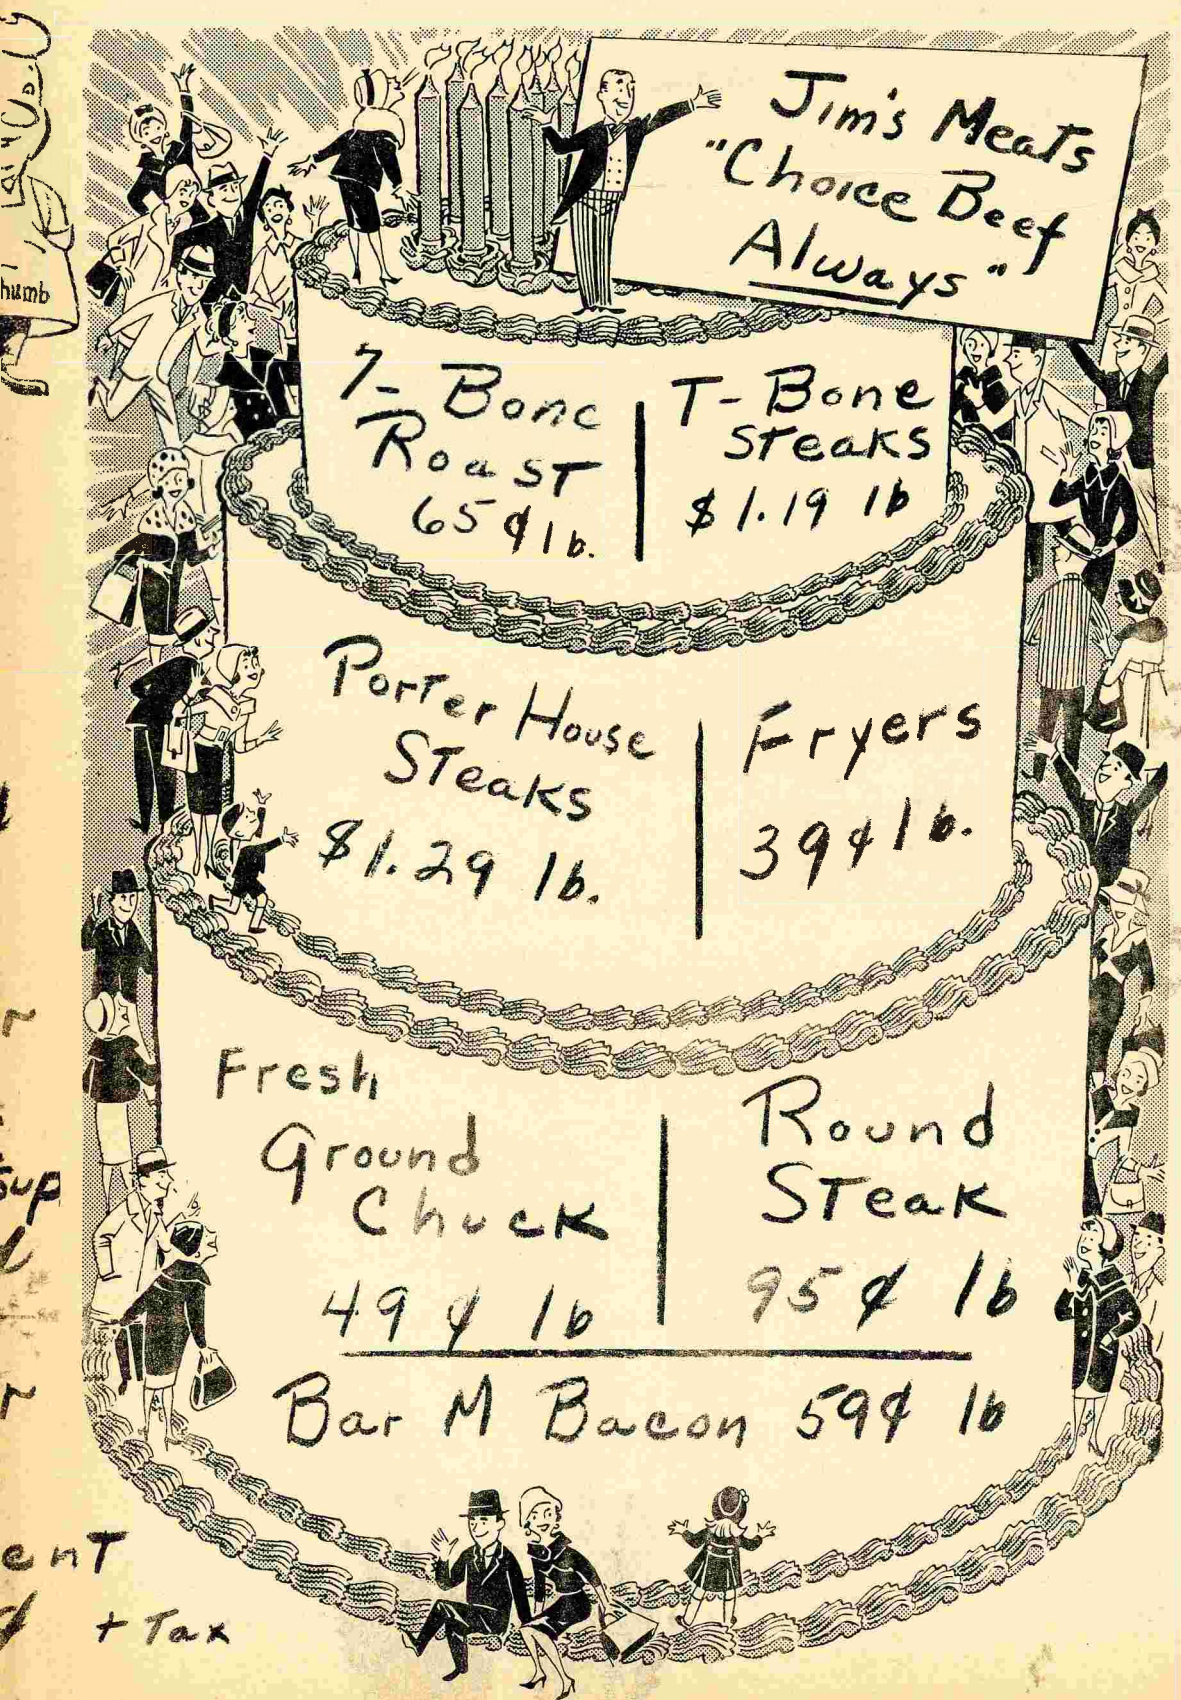 Jim's Meats
"Choice Beef
Always"
7-Bone
Roast
65¢ lb.
T-Bone
Steaks
$1.19 lb
Porter House
Steaks
$1.29 lb.
Fryers
39¢ lb.
Fresh
Ground
Chuck
49¢ lb
Round
Steak
95¢ lb
Bar M Bacon 59¢ lb
humb
sup
ent
¢ + Tax